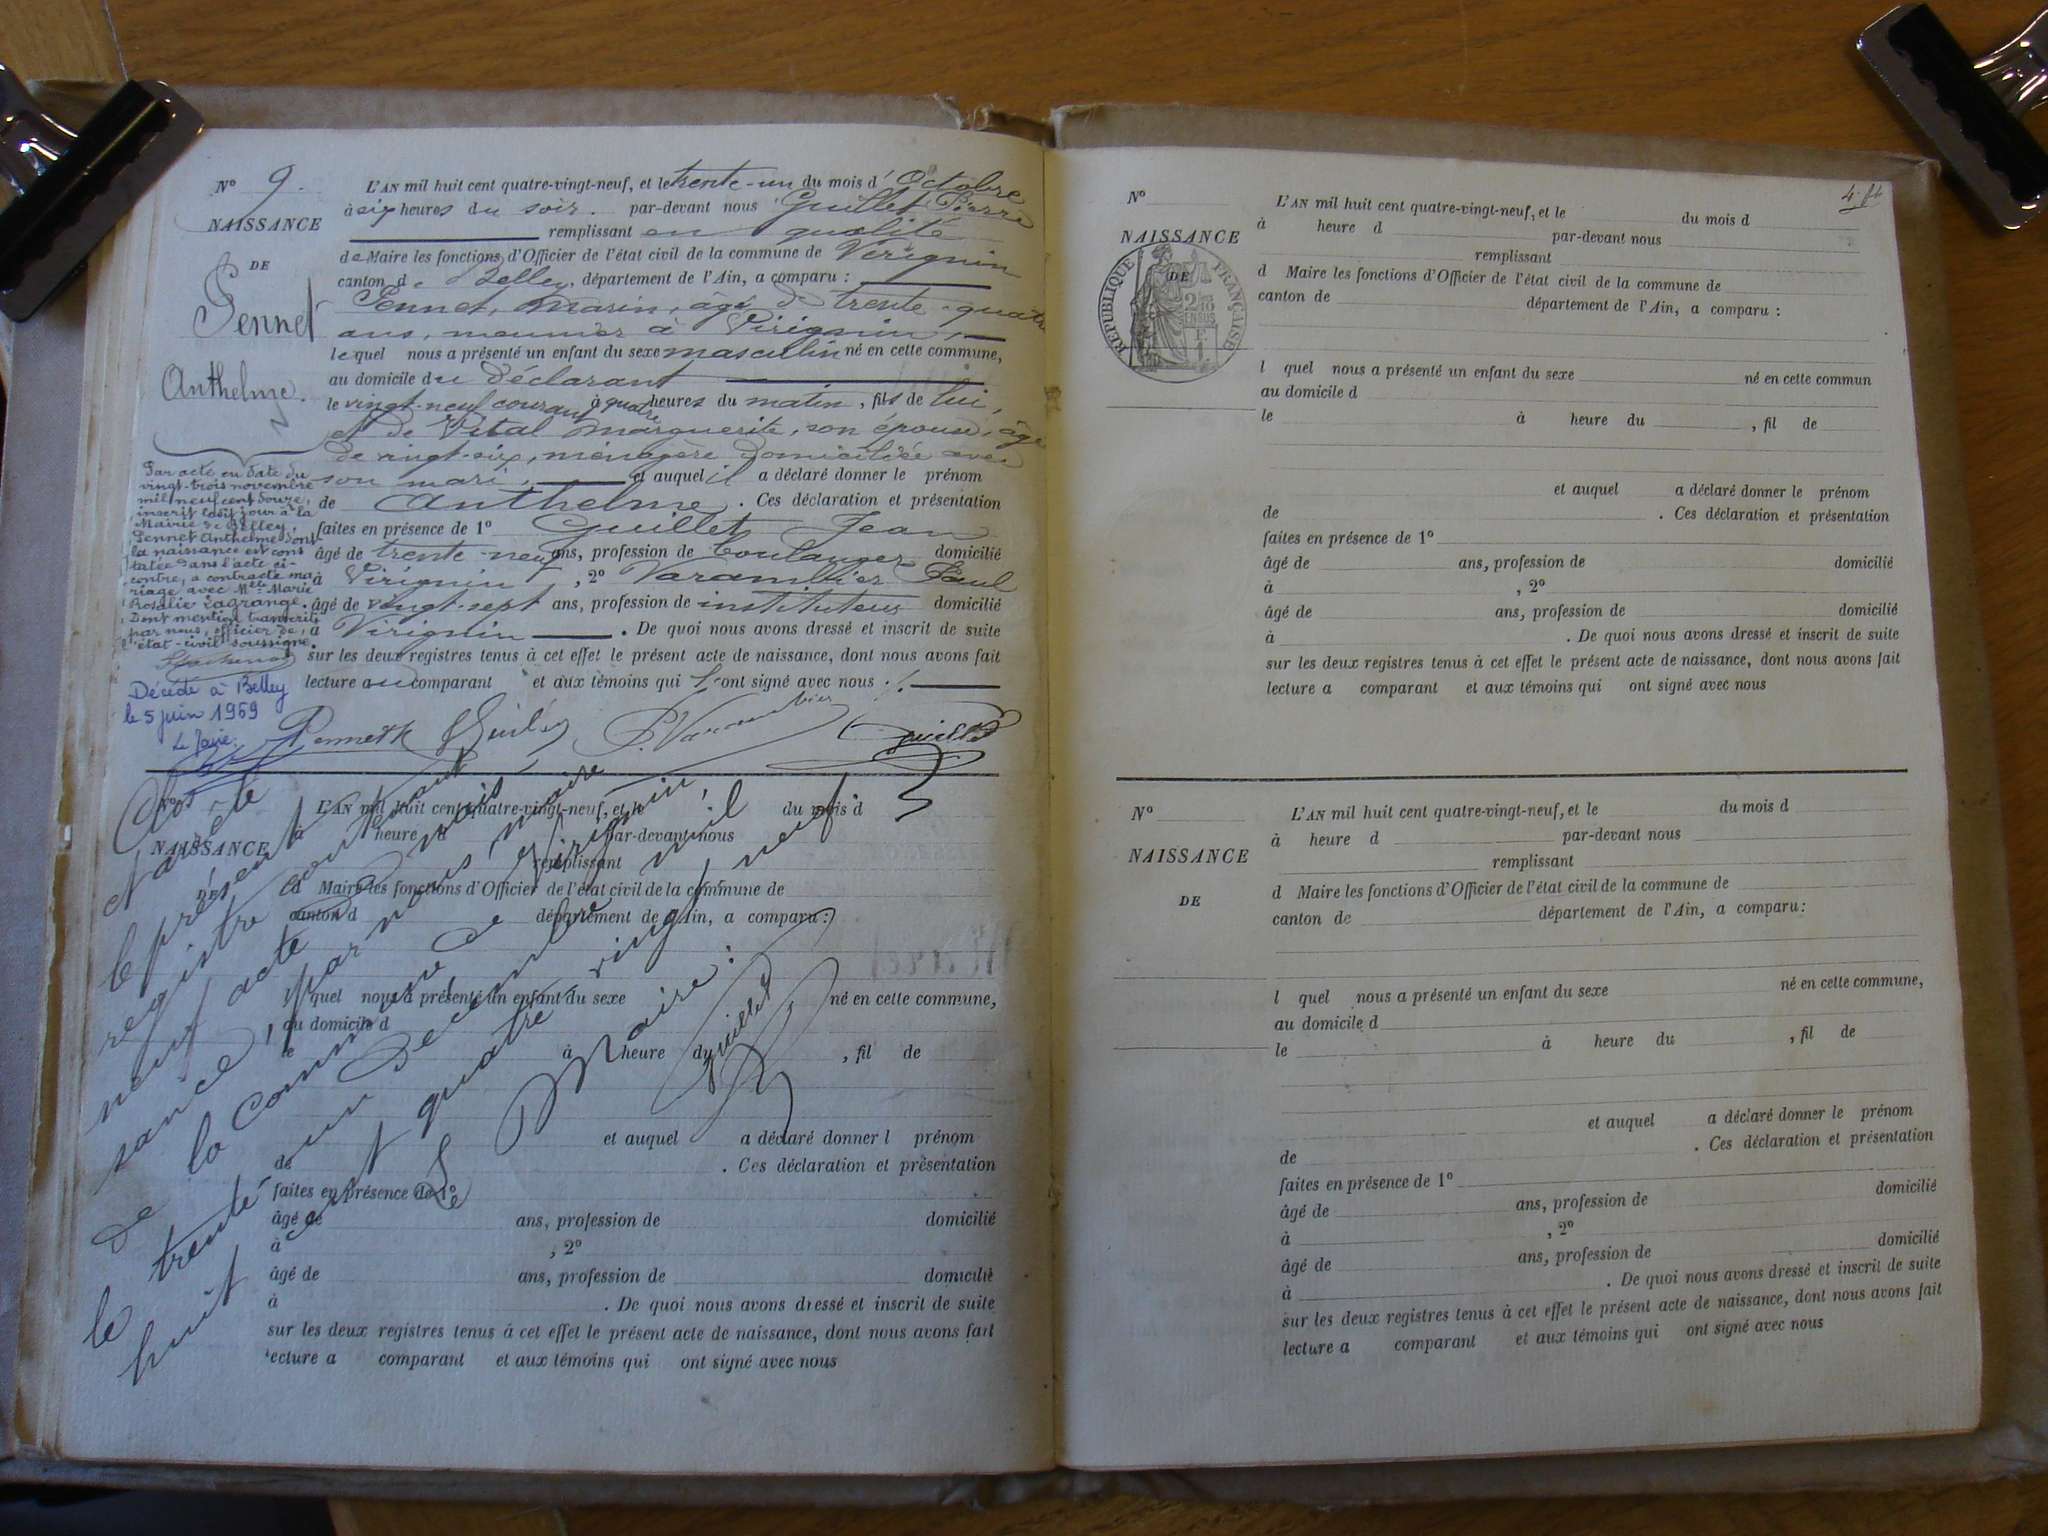 N° 9.
NAISSANCE
DE
Pennet
Anthelme.
L'AN mil huit cent quatre-vingt-neuf, et le trente-un du mois d'Octobre
à six heures du soir. par-devant nous Guillet Pierre
remplissant en qualité
de Maire les fonctions d'Officier de l'état civil de la commune de Virignin
canton de Belley, département de l'Ain, a comparu :
Pennet, Marin, âgé de trente-quatre
ans, meunier à Virignin,
lequel nous a présenté un enfant du sexe masculin né en cette commune,
au domicile du déclarant
le vingt-neuf courant à quatre heures du matin, fils de lui,
et de Vital Marguerite, son épouse, âgée
de vingt-six, ménagère domiciliée avec
son mari, et auquel il a déclaré donner le prénom
de Anthelme. Ces déclaration et présentation
faites en présence de 1° Guillet Jean
âgé de trente-neuf ans, profession de boulanger domicilié
à Virignin, 2° Varambier Paul
âgé de vingt-sept ans, profession de instituteur domicilié
à Virignin. De quoi nous avons dressé et inscrit de suite
sur les deux registres tenus à cet effet le présent acte de naissance, dont nous avons fait
lecture au comparant et aux témoins qui l'ont signé avec nous ./.
P. Varambier
Par acte en date du
vingt-trois novembre
mil neuf cent douze,
inscrit le dit jour à la
Mairie de Belley,
Pennet Anthelme dont
la naissance est cons
tatée dans l'acte ci-
contre, a contracté ma-
riage avec Mlle Marie
Rosalie Lagrange.
Dont mention transcrite
par nous, officier de
l'état-civil soussigné.
Décédé à Belley
le 5 juin 1969
Le Maire.
N°
NAISSANCE
DE
L'AN mil huit cent quatre-vingt-neuf, et le du mois d
à heure d par-devant nous
remplissant
d Maire les fonctions d'Officier de l'état civil de la commune de
canton d département de l'Ain, a comparu :
l quel nous a présenté un enfant du sexe né en cette commune,
au domicile d
le à heure du , fil de
et auquel a déclaré donner l prénom
de . Ces déclaration et présentation
faites en présence de 1°
âgé de ans, profession de domicilié
à , 2°
âgé de ans, profession de domicilié
à . De quoi nous avons dressé et inscrit de suite
sur les deux registres tenus à cet effet le présent acte de naissance, dont nous avons fait
lecture a comparant et aux témoins qui ont signé avec nous
Clos
et arrêté
le présent
registre contenant
neuf acte de nais-
sance, par nous maire
de la Commune de Virignin,
le trente-un Décembre mil
huit cent quatre vingt neuf
Le Maire :
Guillet
4
N°
NAISSANCE
DE
RÉPUBLIQUE FRANÇAISE
2/10 EN SUS
F. 1
L'AN mil huit cent quatre-vingt-neuf, et le du mois d
à heure d par-devant nous
remplissant
d Maire les fonctions d'Officier de l'état civil de la commune de
canton de département de l'Ain, a comparu :
l quel nous a présenté un enfant du sexe né en cette commun
au domicile d
le à heure du , fil de
et auquel a déclaré donner le prénom
de . Ces déclaration et présentation
faites en présence de 1°
âgé de ans, profession de domicilié
à , 2°
âgé de ans, profession de domicilié
à . De quoi nous avons dressé et inscrit de suite
sur les deux registres tenus à cet effet le présent acte de naissance, dont nous avons fait
lecture a comparant et aux témoins qui ont signé avec nous
N°
NAISSANCE
DE
L'AN mil huit cent quatre-vingt-neuf, et le du mois d
à heure d par-devant nous
remplissant
d Maire les fonctions d'Officier de l'état civil de la commune de
canton de département de l'Ain, a comparu :
l quel nous a présenté un enfant du sexe né en cette commune,
au domicile d
le à heure du , fil de
et auquel a déclaré donner le prénom
de . Ces déclaration et présentation
faites en présence de 1°
âgé de ans, profession de domicilié
à , 2°
âgé de ans, profession de domicilié
à . De quoi nous avons dressé et inscrit de suite
sur les deux registres tenus à cet effet le présent acte de naissance, dont nous avons fait
lecture a comparant et aux témoins qui ont signé avec nous